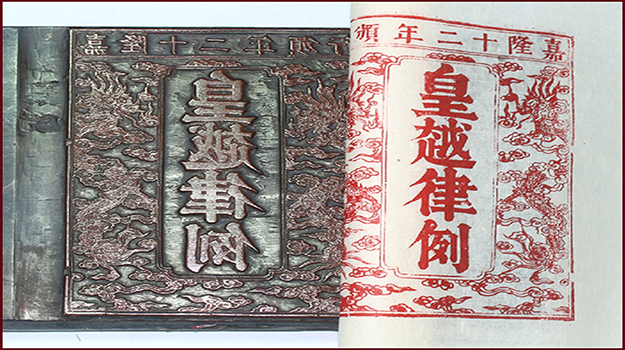 嘉隆十二年頒行
皇越律例
嘉隆十二年頒
皇越律例